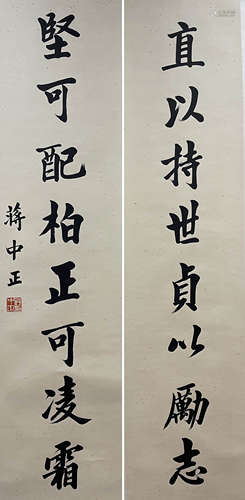 直以持世貞以勵志
堅可配柏正可凌霜
蔣中正